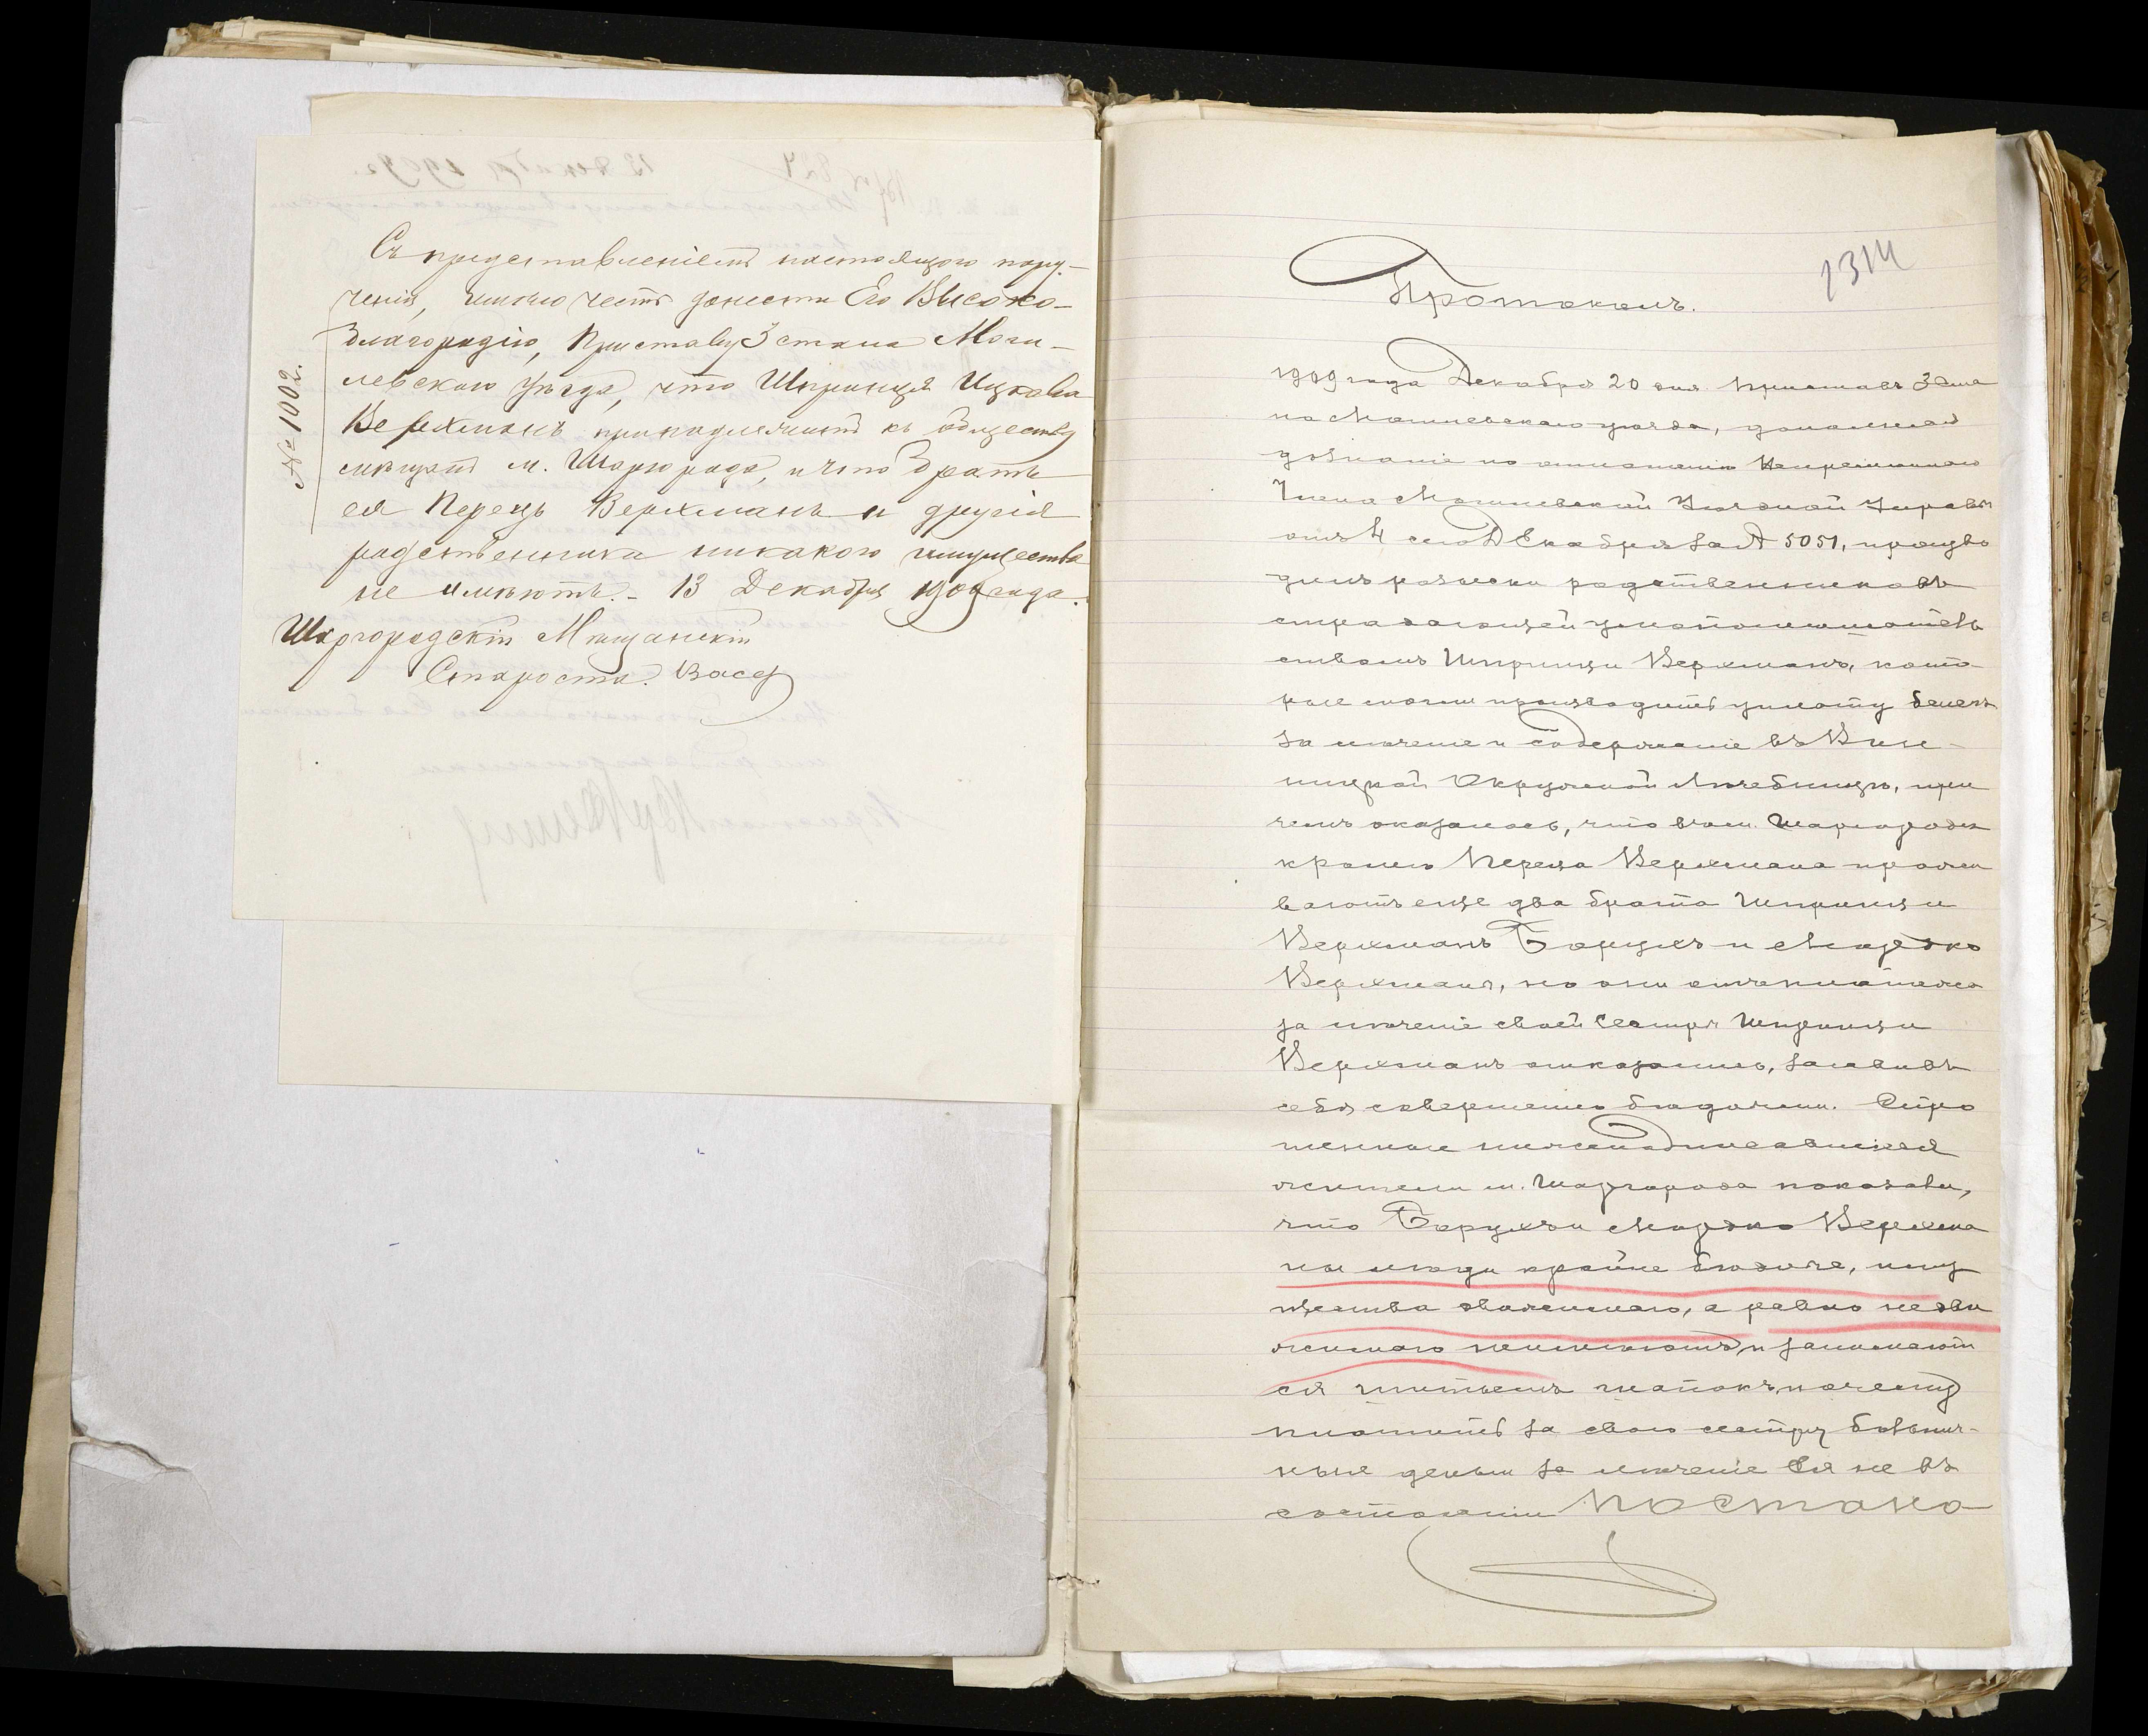 № 1002.
Съ представленіемъ настоящаго пору-
ченія, имѣю честь донести Его Высоко-
благородію, Приставу 3 стана Моги-
левскаго уѣзда, что Шпринця Ицкова
Верхманъ принадлежитъ къ обществу
мѣщанъ м. Шаргорода, и что братъ
ея Перець Верхманъ и другія
родственники никакого имущества
не имѣютъ. - 13 Декабря 1909 года.
Шаргородскій Мѣщанскій
Староста.
1314
Протоколъ.
1909 года Декабря 20 дня Приставъ 3 ста
на Могилевскаго уѣзда, дополняя
дознаніе по отношенію Непремѣннаго
Члена Могилевской Уѣздной Управы
отъ 4 сего Декабря за № 5051, произво
дилъ розыски родственниковъ
страдающей умопомѣшатель
ствомъ Шпринци Верхманъ, кото
рые могли производить уплату денегъ
за леченіе и содержаніе въ Вин-
ницкой Окружной Лечебницѣ, при
чемъ оказалось, что въ м. Шаргородѣ
кромѣ Переца Верхмана прожи
ваютъ еще два брата Шпринци
Верхманъ Борухъ и Мордко
Верхманы, но они отъ платежа
за леченіе своей сестры Шпринци
Верхманъ отказались, заявивъ
себя совершенно бѣдными. Спро
шенные нижеподписавшіеся
жители м. Шаргорода показали,
что Борухъ и Мордко Верхма
ны люди крайне бѣдные, иму
щества движимаго, а равно недви
жимаго неимѣютъ, и занимают
ся шитьемъ шапокъ, почему
платить за свою сестру больнич-
ныя деньги за леченіе ея не въ
состояніи Постано